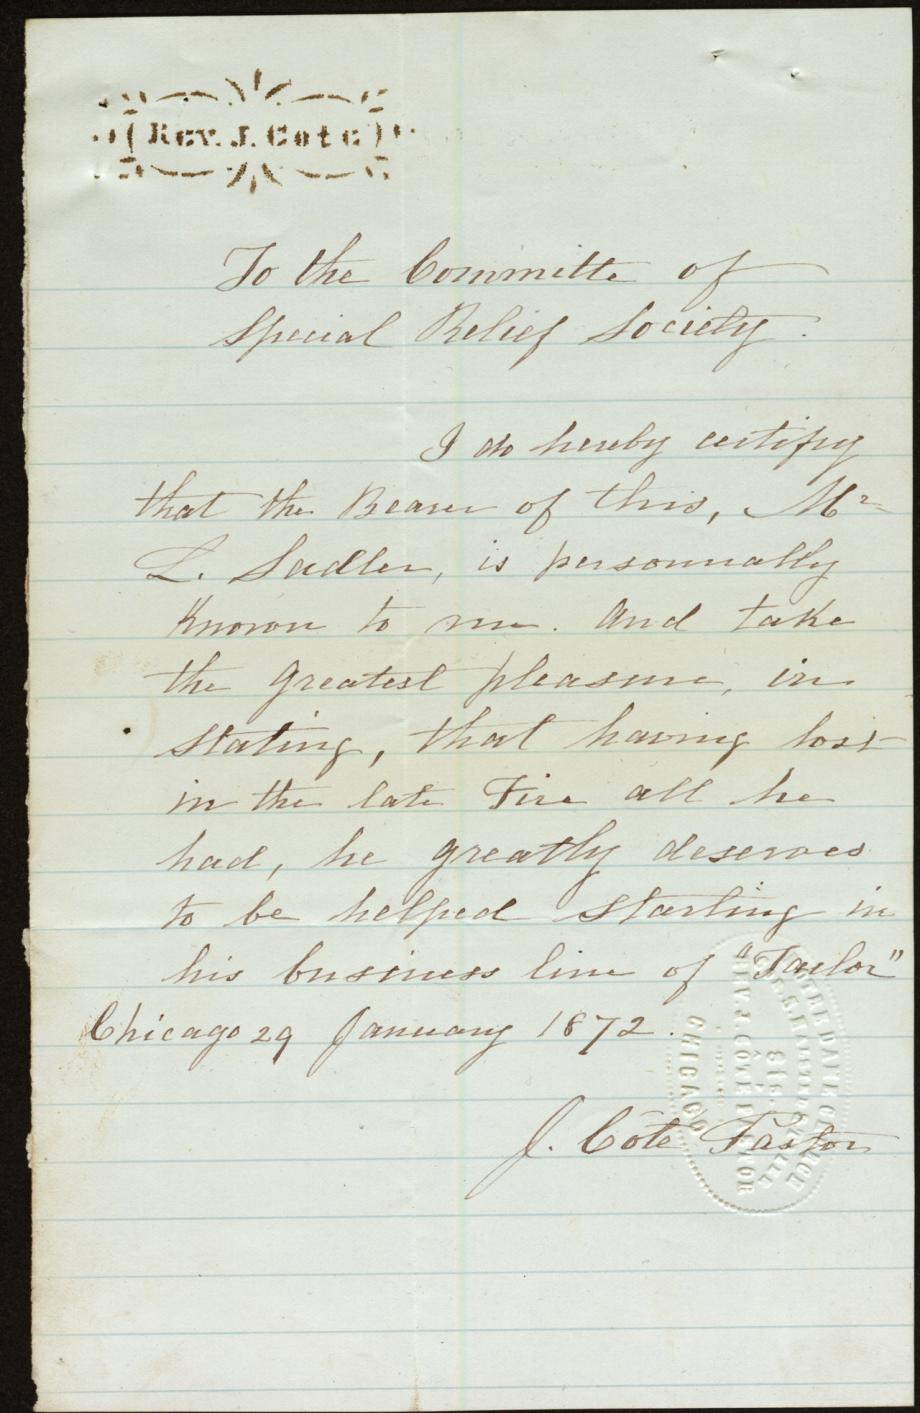 Rev. J. Cote
To the Committe of
Special Relief Society.
I do hereby certify
that the Bearer of this, Mr
L. Sadler, is personnally
Known to me. And take
the greatest pleasure, in
stating, that having lost
in the late Fire all he
had, he greatly deserves
to be helped starting in
his business line of "Tailor"
Chicago 29 January 1872.
J. Côté Pastor
NOTRE DAME CHURCH
REV. J. COTE PASTOR
CHICAGO